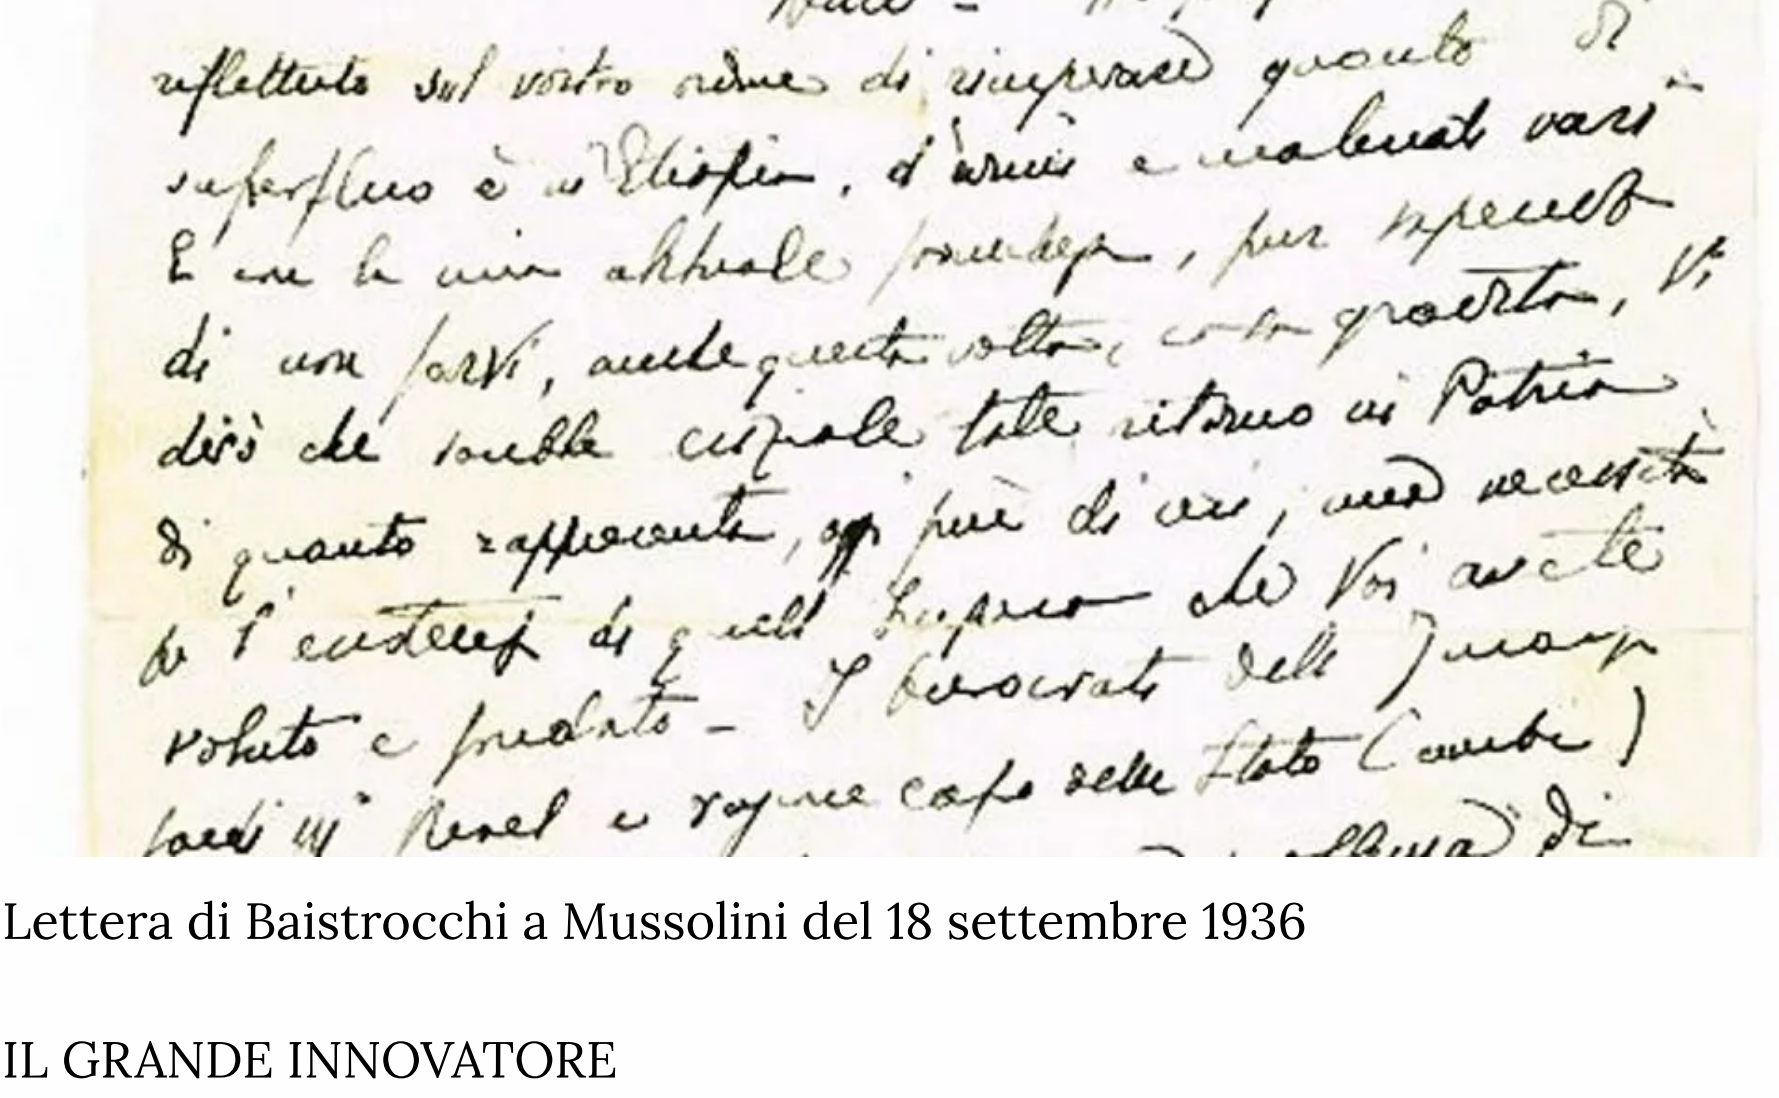 riflettuto sul vostro ordine di ricuperare quanto di
superfluo è in Etiopia, d'armi e materiali vari
E con la mia abituale franchezza, pur
di non farvi, anche questa volta, cosa gradita, Vi
dirò che sarebbe esiziale tale ritorno in Patria
di quanto rappresenta, oggi più di ieri, una necessità
per l'esistenza di quell'Impero che Voi avete
voluto e fondato – I burocrati delle Finanze
Revel e ragioniere capo dello Stato (ambi)
di
Lettera di Baistrocchi a Mussolini del 18 settembre 1936
IL GRANDE INNOVATORE